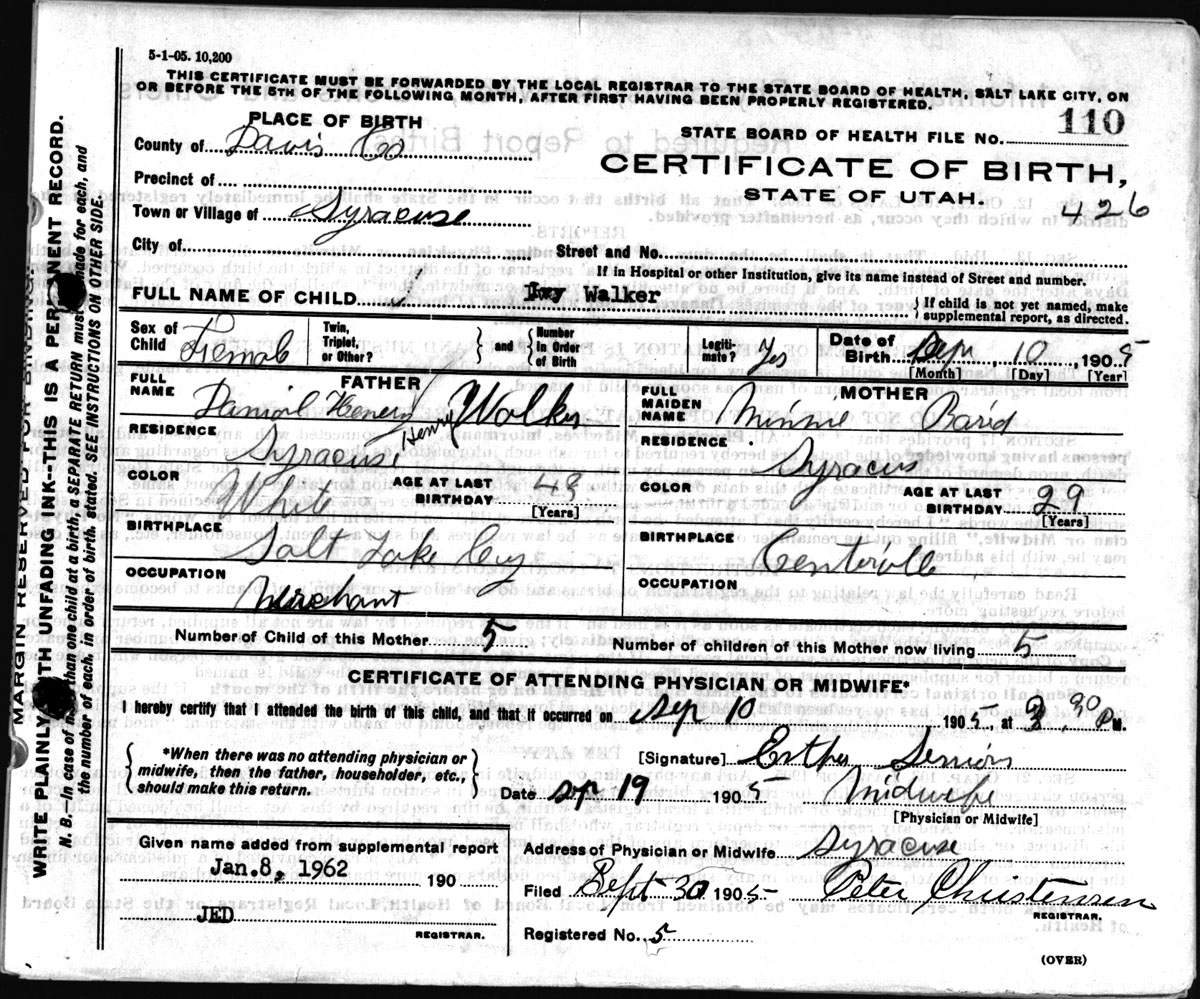 5-1-05. 10,200
THIS CERTIFICATE MUST BE FORWARDED BY THE LOCAL REGISTRAR TO THE STATE BOARD OF HEALTH, SALT LAKE CITY, ON
OR BEFORE THE 5TH OF THE FOLLOWING MONTH, AFTER FIRST HAVING BEEN PROPERLY REGISTERED.
PLACE OF BIRTH
STATE BOARD OF HEALTH FILE No. 110
County of Davis Co
CERTIFICATE OF BIRTH,
Precinct of
STATE OF UTAH.
426
Town or Village of Syracuse
City of
Street and No.
If in Hospital or other Institution, give its name instead of Street and number.
FULL NAME OF CHILD Walker
If child is not yet named, make
supplemental report, as directed.
Sex of Child Female
Twin, Triplet, or Other?
and
Number in Order of Birth
Legiti-mate? Yes
Date of Birth Sep 10, 1905
[Month] [Day] [Year]
FATHER
FULL NAME Daniel Henery Walker
Henry
RESIDENCE Syracus
COLOR White
AGE AT LAST BIRTHDAY 48
[Years]
BIRTHPLACE
Salt Lake City
OCCUPATION
Merchant
MOTHER
FULL MAIDEN NAME Minnie Bard
RESIDENCE Syracus
COLOR
AGE AT LAST BIRTHDAY 29
[Years]
BIRTHPLACE
Centerville
OCCUPATION
Number of Child of this Mother 5
Number of children of this Mother now living 5
CERTIFICATE OF ATTENDING PHYSICIAN OR MIDWIFE*
I hereby certify that I attended the birth of this child, and that it occurred on Sep 10, 1905 at 30 P M.
*When there was no attending physician or
midwife, then the father, householder, etc.,
should make this return.
[Signature] Esther Senior
Date Sep 19 1905
Midwife
[Physician or Midwife]
Given name added from supplemental report
Jan. 8, 1962 190
JED
REGISTRAR.
Address of Physician or Midwife Syracuse
Filed Sept 30 1905 Peter Christensen
REGISTRAR.
Registered No. 5
(OVER)
MARGIN RESERVED FOR BINDING.
WRITE PLAINLY WITH UNFADING INK--THIS IS A PERMANENT RECORD.
N. B.—In case of more than one child at a birth, a SEPARATE RETURN must be made for each, and
the number of each, in order of birth, stated. SEE INSTRUCTIONS ON OTHER SIDE.